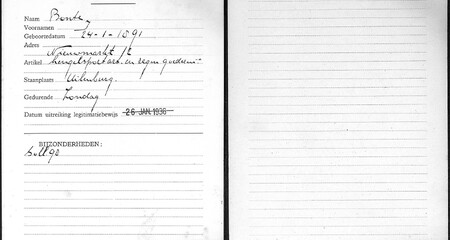 Naam Bonte,
Voornamen
Geboortedatum 24-1-1891
Adres
Nieuwmarkt 12
Artikel hengelsportart. en regengoederen
Staanplaats Uilenburg.
Gedurende Zondag
Datum uitreiking legitimatiebewijs 26 JAN. 1936
BIJZONDERHEDEN: